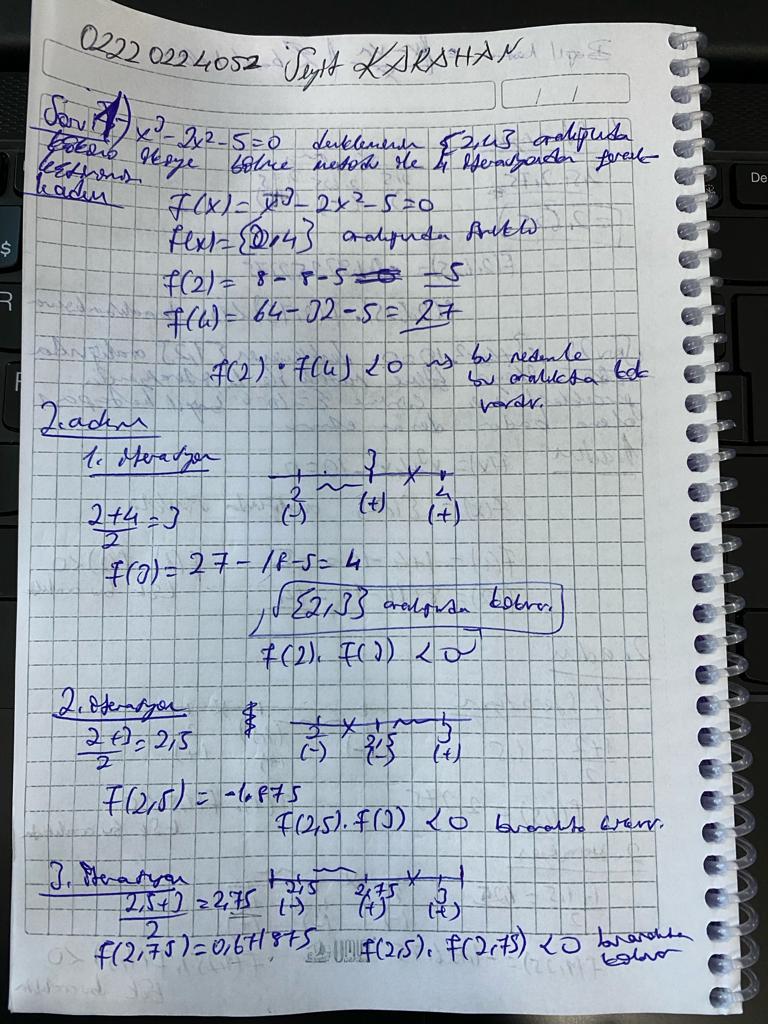 02220224052 Seyit KARAHAN
/ /
Soru 1) x³-2x²-5=0 denkleminin {2,4} aralığında
ikiye bölme metodu ile 4 iterasyonda
1.adım
f(x)= x³-2x²-5=0
f(x)={2,4} aralığında
f(2)= 8-8-5 -5
f(4)= 64-32-5=27
f(2)·f(4)<0 → bu nedenle
bu aralıkta kök
vardır.
2.adım
1. iterasyon
3
2 4
(-) (+) (+)
2+4/2=3
f(3)=27-18-5=4
{2,3} aralığında
f(2).f(3)<0
2. iterasyon
2+3/2=2,5
2 2,5 3
(-) (-) (+)
f(2,5)=-1,875
f(2,5).f(3)<0 bu aralıkta
3. iterasyon
2,5+3/2=2,75
2,5 2,75 3
(-) (+) (+)
f(2,75)=0,671875 f(2,5).f(2,75)<0 bu aralıkta